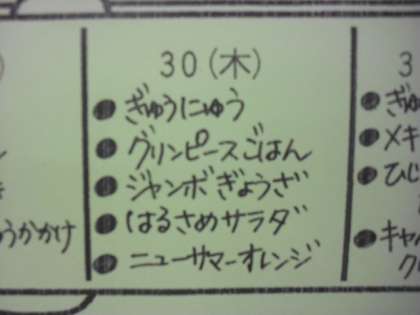 30(木)
●ぎゅうにゅう
●グリンピースごはん
●ジャンボぎょうざ
●はるさめサラダ
●ニューサマーオレンジ
うかかけ
3
●ぎゅ
●メキ
●ひじ
●キャ